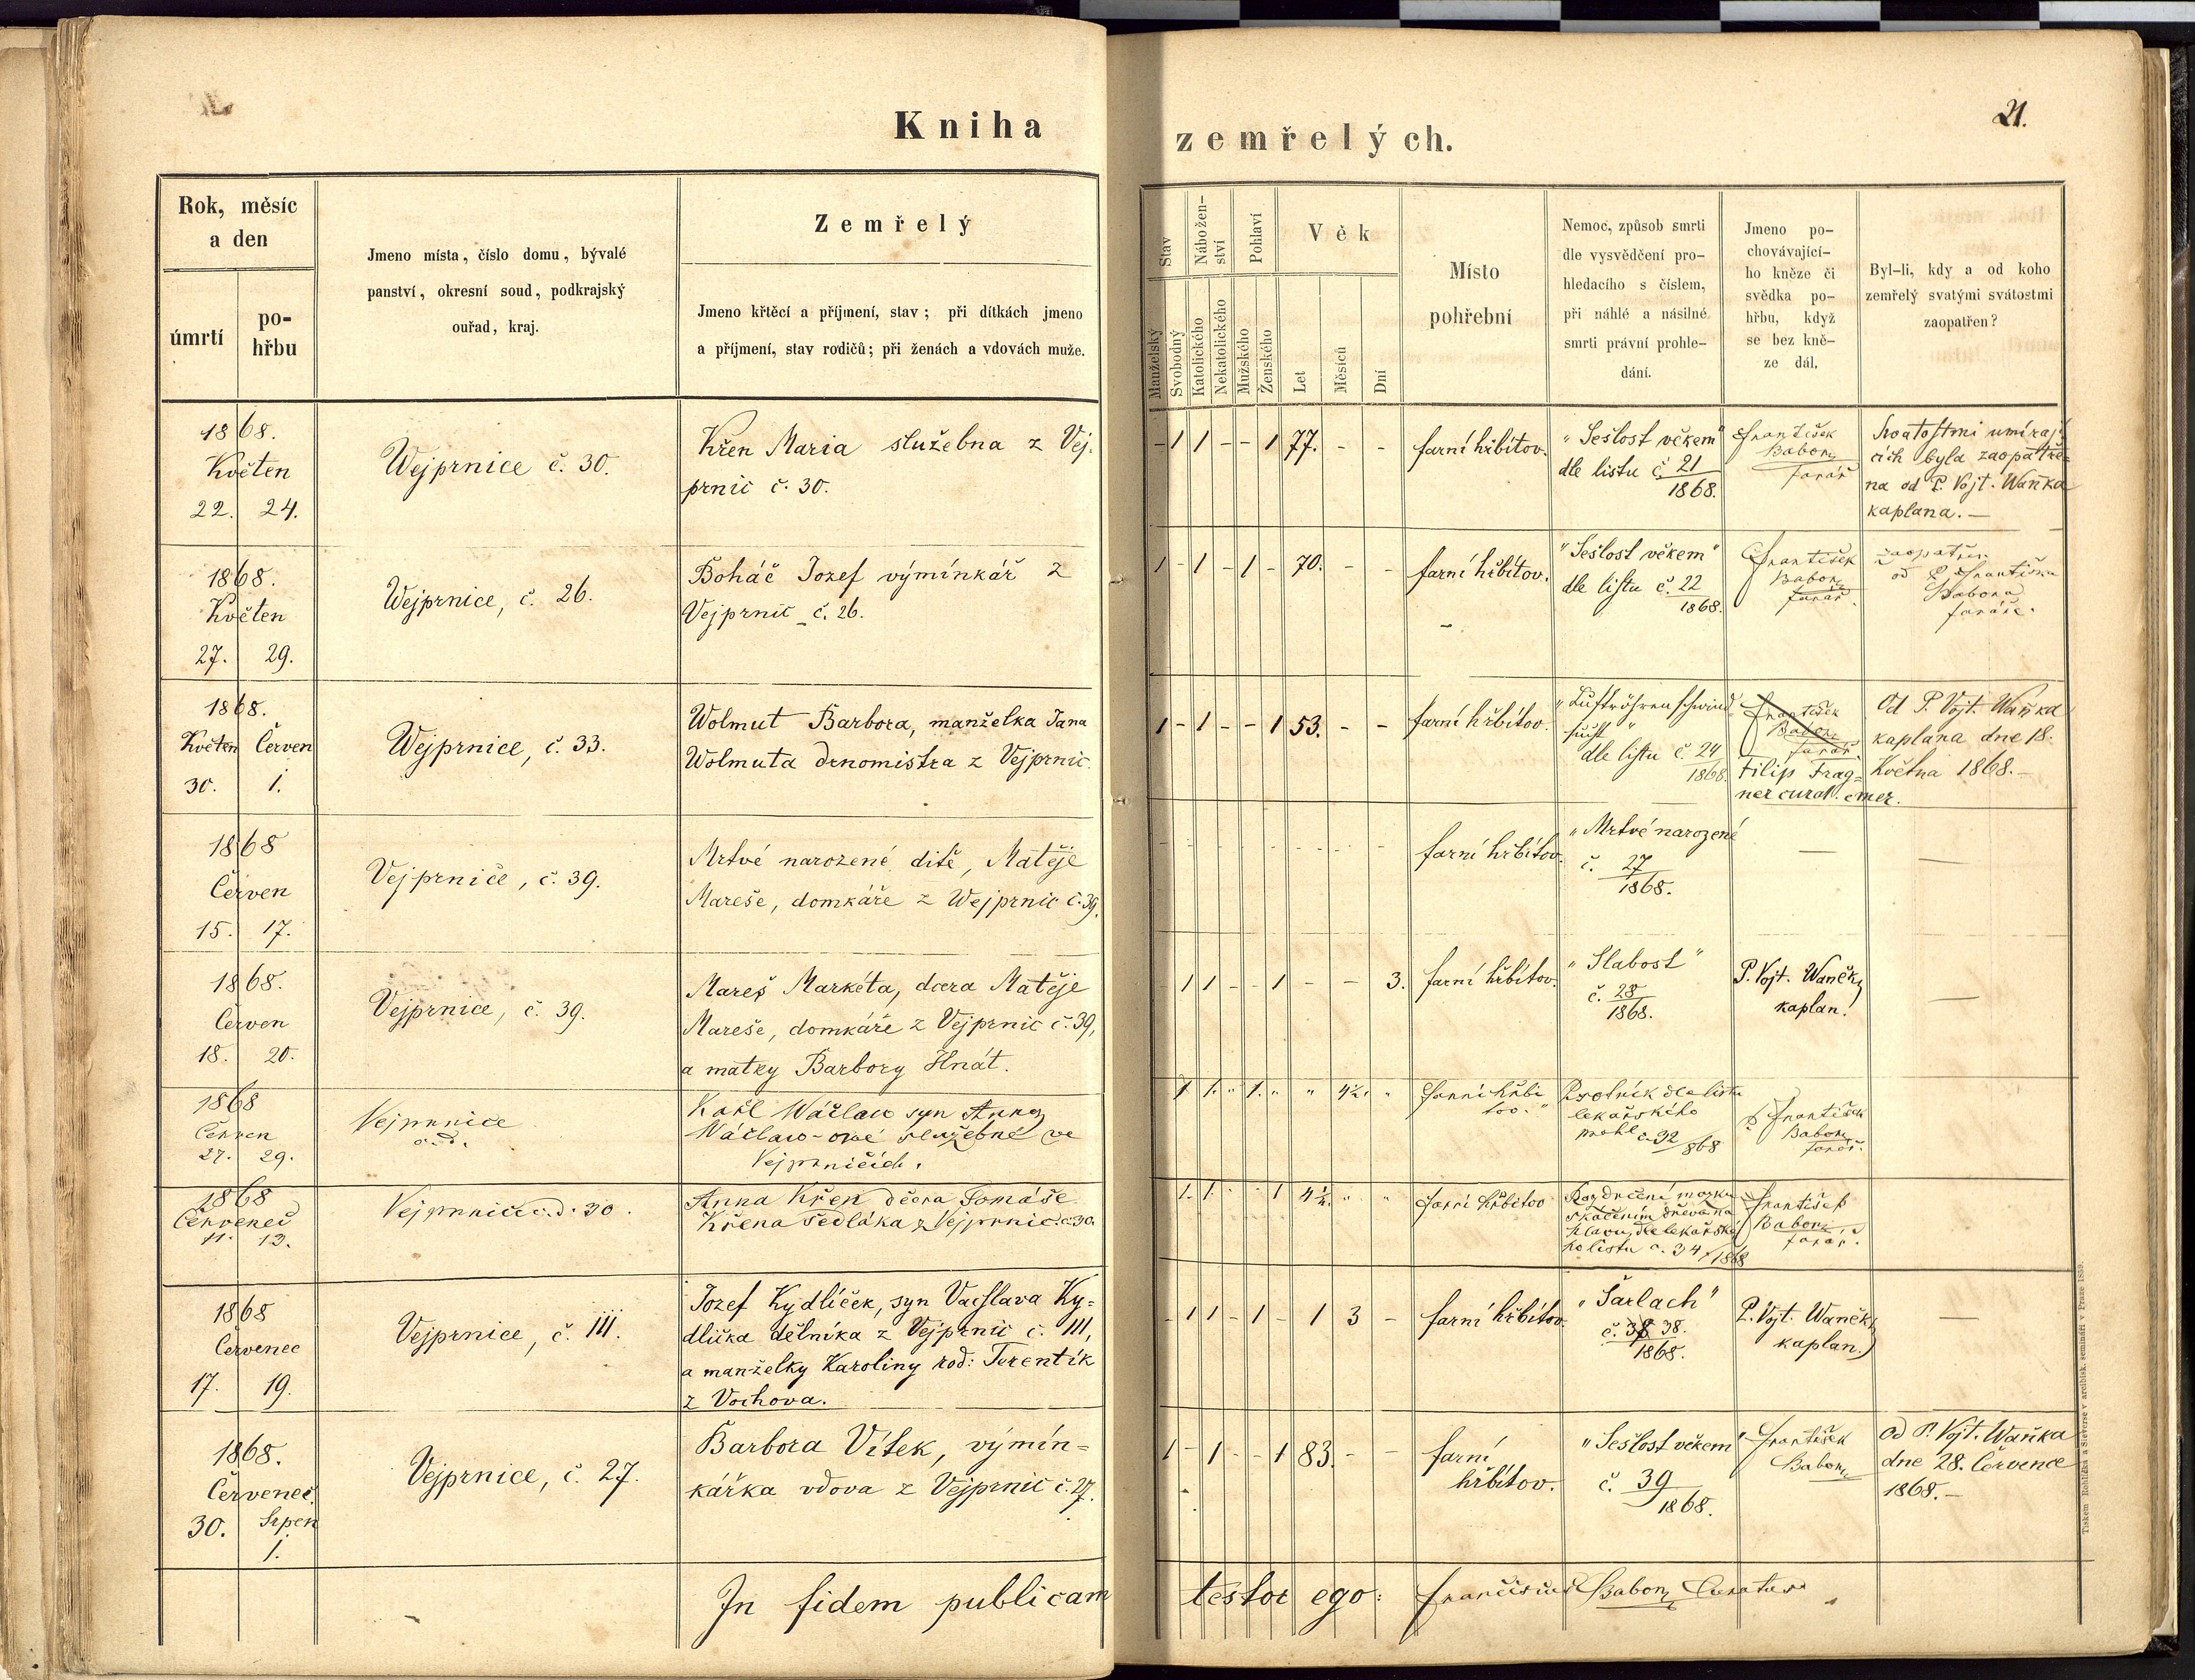 Kniha
zemřelých.
21.
Rok, měsíc
a den
úmrtí
po-
hřbu
Jmeno místa, číslo domu, bývalé
panství, okresní soud, podkrajský
ouřad, kraj.
Zemřelý
Jmeno křtěcí a příjmení, stav; při dítkách jmeno
a příjmení, stav rodičů; při ženách a vdovách muže.
Stav
Manželský
Svobodný
Nábožen-
ství
Katolického
Nekatolického
Pohlaví
Mužského
Ženského
Věk
Let
Měsíců
Dní
Místo
pohřební
Nemoc, způsob smrti
dle vysvědčení pro-
hledacího s číslem,
při náhlé a násilné
smrti právní prohle-
dání.
Jmeno po-
chovávající-
ho kněze či
svědka po-
hřbu, když
se bez kně-
ze dál.
Byl-li, kdy a od koho
zemřelý svatými svátostmi
zaopatřen?
1868.
Květen
22. 24.
Wejprnice č. 30.
Křen Maria služebna z Vej-
prnic č. 30.
- 1 1 - - 1 77. - -
farní hřbitov.
"Sešlost věkem"
dle listu č. 21
1868.
František
Babor
farář
Svatostmi umíraj
cích byla zaopatře-
na od P. Vojt. Waňka
kaplana. -
1868.
Květen
27. 29.
Wejprnice, č. 26.
Boháč Jozef výmínkář z
Vejprnic č. 26.
1 - 1 - 1 - 70. - -
farní hřbitov.
"Sešlost věkem"
dle listu č. 22
1868.
František
Babor
farář.
zaopatřen
od P. Františka
Babora
faráře.
1868.
Květen Červen
30. 1.
Wejprnice, č. 33.
Wolmut Barbora, manželka Jana
Wolmuta drnomistra z Vejprnic.
1 - 1 - - 1 53. - -
farní hřbitov.
"Luftröhrenschwind
sucht"
dle listu č. 24
1868.
František
Babor
farář.
Filip Frag-
ner curat. emer.
Od P. Vojt. Waňka
kaplana dne 18.
Května 1868. -
1868
Červen
15. 17.
Vejprnice, č. 39.
Mrtvé narozené dítě, Matěje
Mareše, domkáře z Wejprnic č. 39.
farní hřbitov.
"Mrtvé narozené
č. 27
1868.
1868.
Červen
18. 20.
Vejprnice, č. 39.
Mareš Markéta, dcera Matěje
Mareše, domkáře z Vejprnic č. 39,
a matky Barbory Hnát.
1 1 - - 1 - - 3.
farní hřbitov.
"Slabost"
č. 28
1868.
P. Vojt. Waněk,
kaplan.
1868
Červen
27. 29.
Vejprnice
č. d.
Karl Wáčlaw syn Anny
Wáčlaw-ové služebné ve
Vejprnicích.
1 1. " 1. " " 4½. "
farní hřbi
tov. "
Psotník dle listu
lekařského
prohl č. 32/868
P František
Babor
farář.
1868
Červenec
11. 13.
Vejprnice č. d. 30.
Anna Křen dčera Tomáše
Křena sedláka z Vejprnic č. 30.
1. 1. " " 1 4½. " "
farní hřbitov
Rozdrcení mozku
skácením dřeva na
hlavu, dle lekařské
ho listu č. 34/1868
František
Babor
farář.
1868
Červenec
17. 19.
Vejprnice, č. 111.
Jozef Kydlíček, syn Vacslava Ky-
dlíčka dělníka z Vejprnic č. 111,
a manželky Karoliny rod: Terentík
z Vochova.
- 1 1 - 1 - 1 3 -
farní hřbitov.
"Šarlach"
č. 38.
1868.
P. Vojt. Waněk,
kaplan.
1868.
Červenec
30. Srpen
1.
Vejprnice, č. 27.
Barbora Vítek, výmín-
kářka vdova z Vejprnic č. 27.
1 - 1 - - 1 83. - -
farní
hřbitov.
"Sešlost věkem"
č. 39
1868.
František
Babor
Od P. Vojt. Waňka
dne 28. Července
1868. -
In fidem publicam
testor ego: Franciscus Babor Curatus
Tiskem Rohlíčka a Sieverse v arcibisk. semináři v Praze 1859.